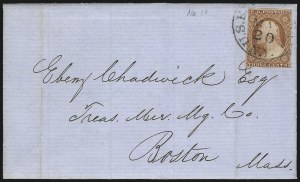 20
Ebenr Chadwick Esq
Treas. Mer. Mg. Co.
Boston
Mass.